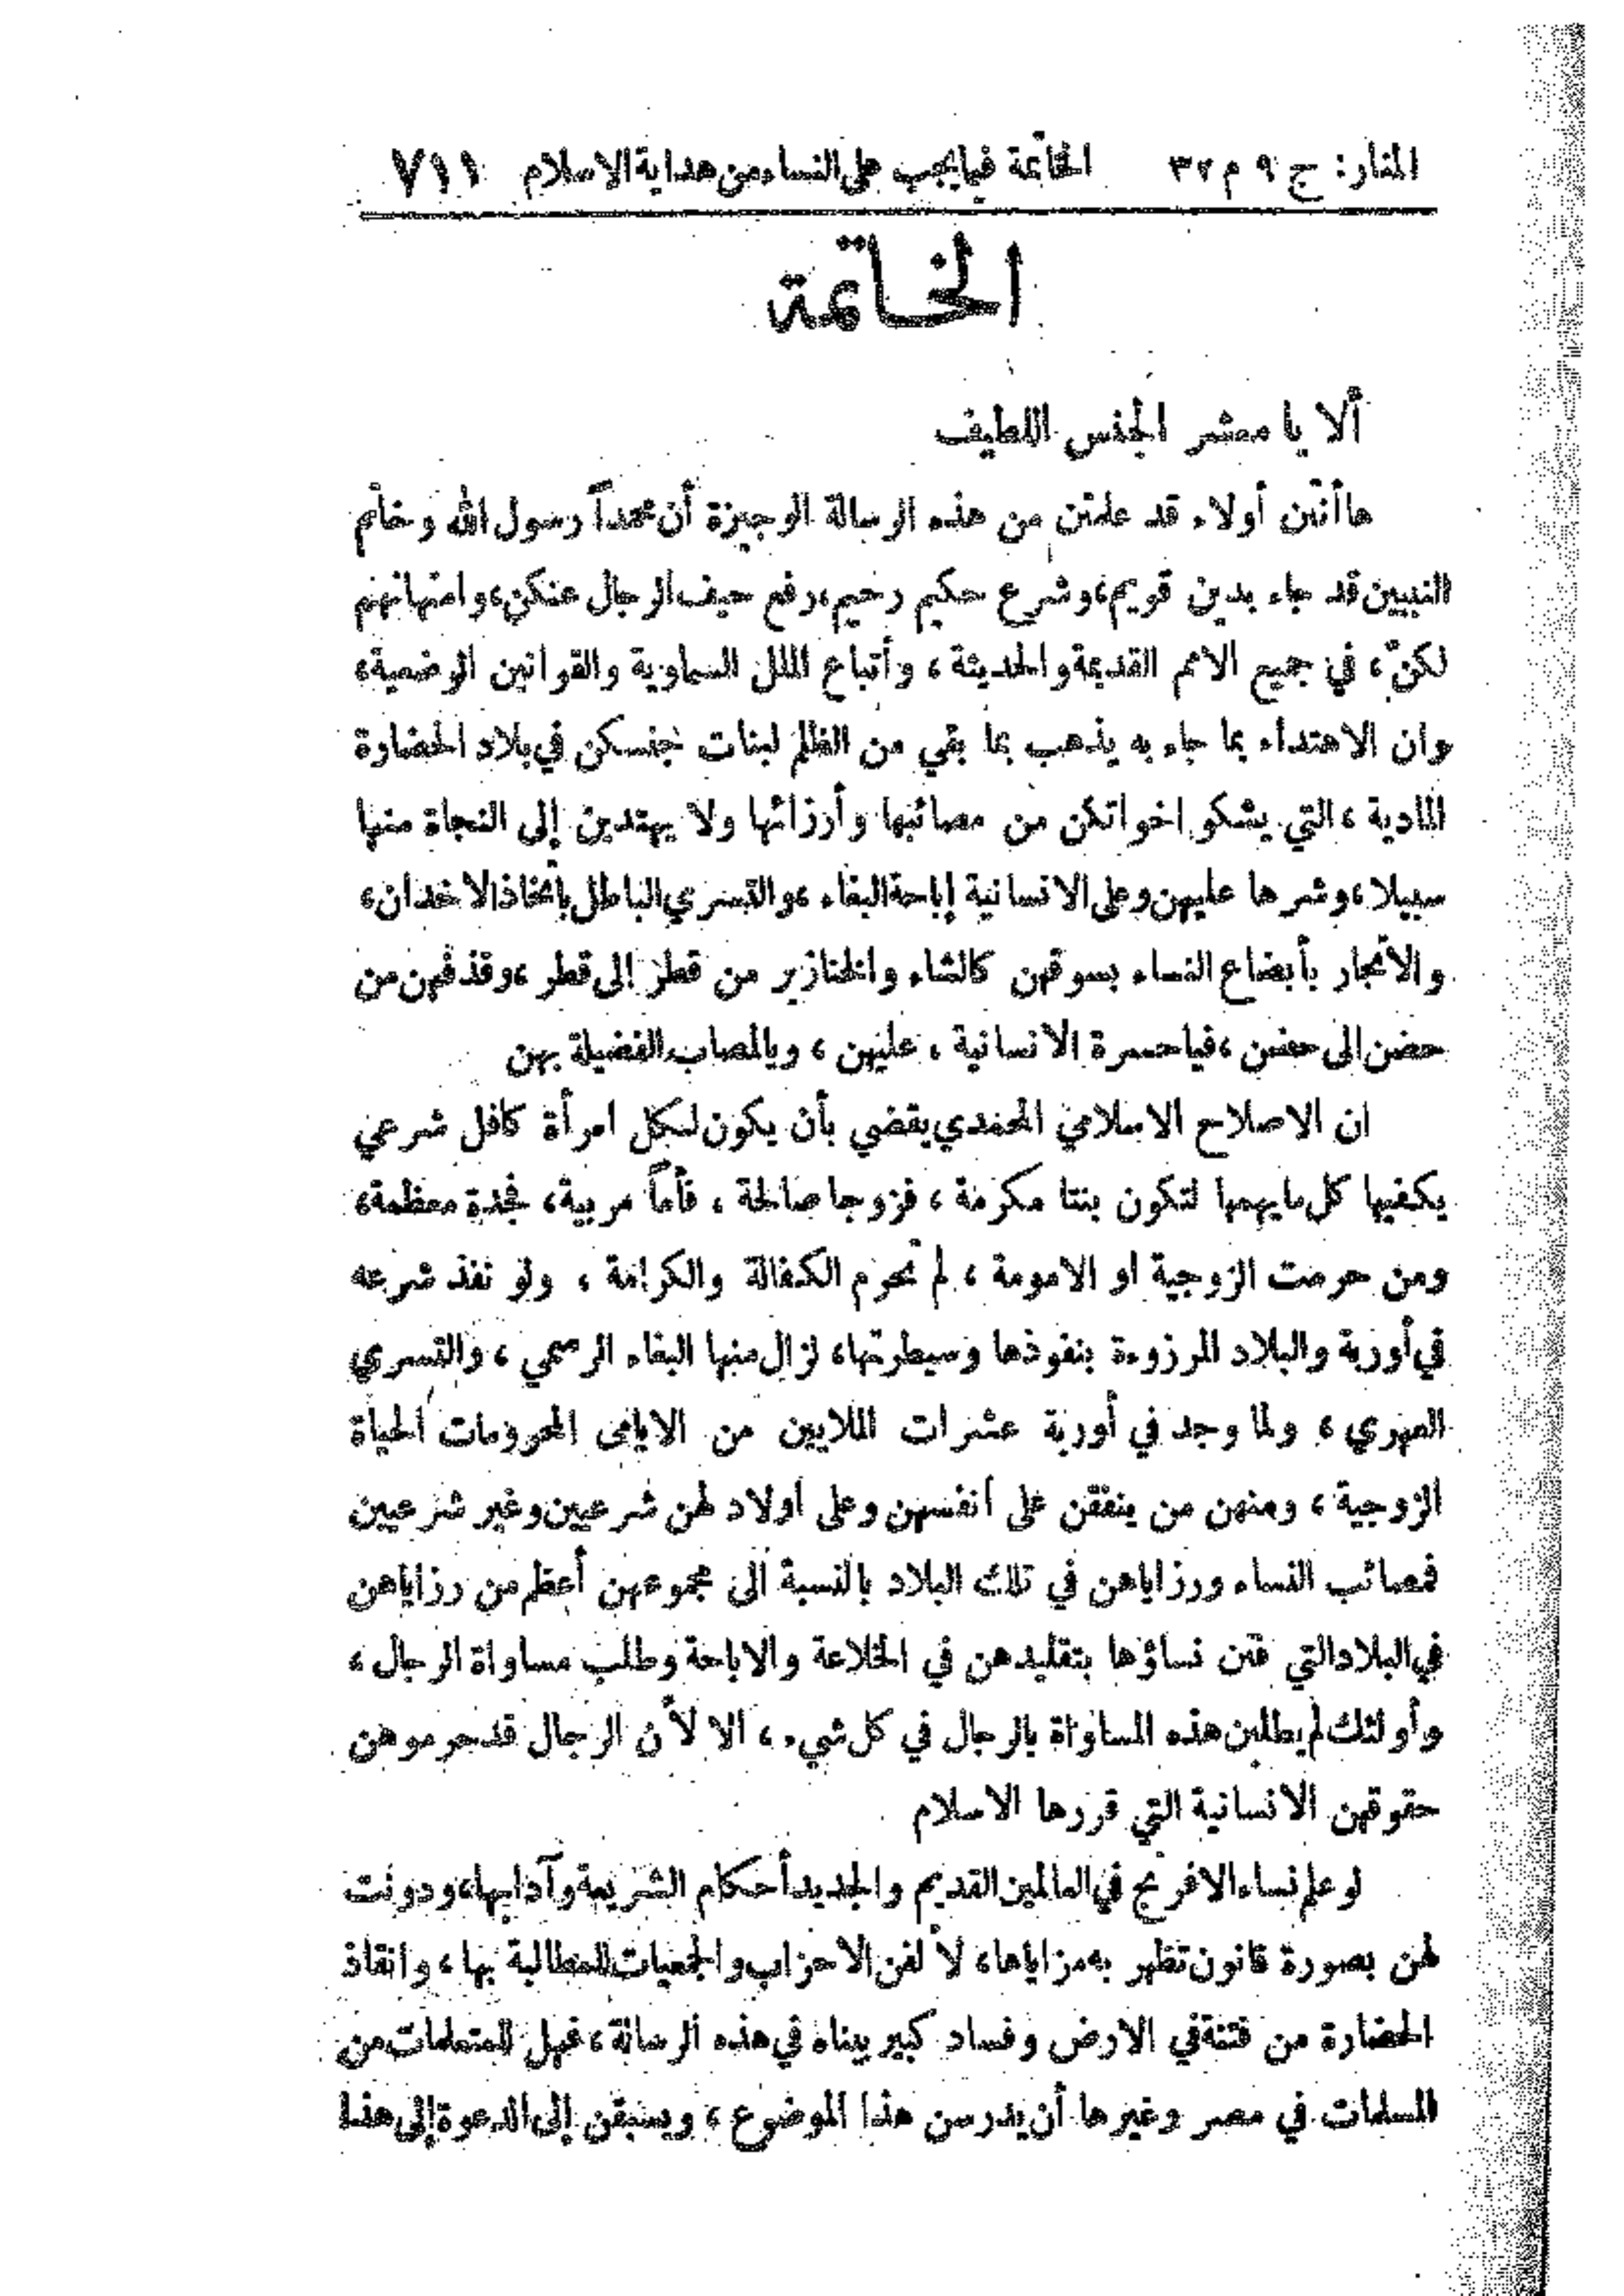 المنار: ج ٩ م ٣٢ الخاتمة فيما يجب على النساء من هداية الاسلام ٧١١
الخاتمة
ألا يا معشر الجنس اللطيف
ها أنتن أولاء قد علمتن من هذه الرسالة الوجيزة أن محمداً رسول الله وخاتم
النبيين قد جاء بدين قويم، وشرع حكيم رحيم، رفع حيف الرجال عنكن، وامتهانهم
لكنّ، في جميع الامم القديمة والحديثة، وأتباع الملل السماوية والقوانين الوضعية،
وان الاهتداء بما جاء به يذهب بما بقي من الظلم لبنات جنسكن في بلاد الحضارة
المادية، التي يشكو اخواتكن من مصائبها وأرزائها ولا يهتدين إلى النجاة منها
سبيلا، وشرها عليهن وعلى الانسانية إباحة البغاء، والتسري الباطل باتخاذ الاخدان،
والاتجار بأبضاع النساء بسوقهن كالشاء والخنازير من قطر إلى قطر، وقذفهن من
حضن الى حضن، فيا حسرة الانسانية، عليهن، ويا لمصاب الفضيلة بهن
ان الاصلاح الاسلامي المحمدي يقضي بأن يكون لكل امرأة كافل شرعي
يكفيها كل ما يهمها لتكون بنتا مكرمة، فزوجا صالحة، فأماً مربية، فجدة معظمة،
ومن حرمت الزوجية او الامومة، لم تحرم الكفالة والكرامة، ولو نفذ شرعه
في أوربة والبلاد المرزوءة بنفوذها وسيطرتها، لزال منها البغاء الرسمي، والتسري
الجهري، ولما وجد في أوربة عشرات الملايين من الايامى المحرومات الحياة
الزوجية، ومنهن من ينفقن على أنفسهن وعلى اولاد لهن شرعيين وغير شرعيين
فمصائب النساء ورزاياهن في تلك البلاد بالنسبة الى مجموعهن أعظم من رزاياهن
في البلاد التي فتن نساؤها بتقليدهن في الخلاعة والاباحة وطلب مساواة الرجال،
وأولئك لم يطلبن هذه المساواة بالرجال في كل شيء، الا لأن الرجال قد حرموهن
حقوقهن الانسانية التي قررها الاسلام
لو علم نساء الافرنج في العالمين القديم والجديد أحكام الشريعة وآدابها، ودونت
لهن بصورة قانون تظهر به مزاياها، لألفن الاحزاب والجمعيات للمطالبة بها، وانقاذ
الحضارة من فتنة في الارض وفساد كبير بيناه في هذه الرسالة، فهل للمتعلمات من
المسلمات في مصر وغيرها أن يدرسن هذا الموضوع، ويسبقن إلى الدعوة إلى هذا